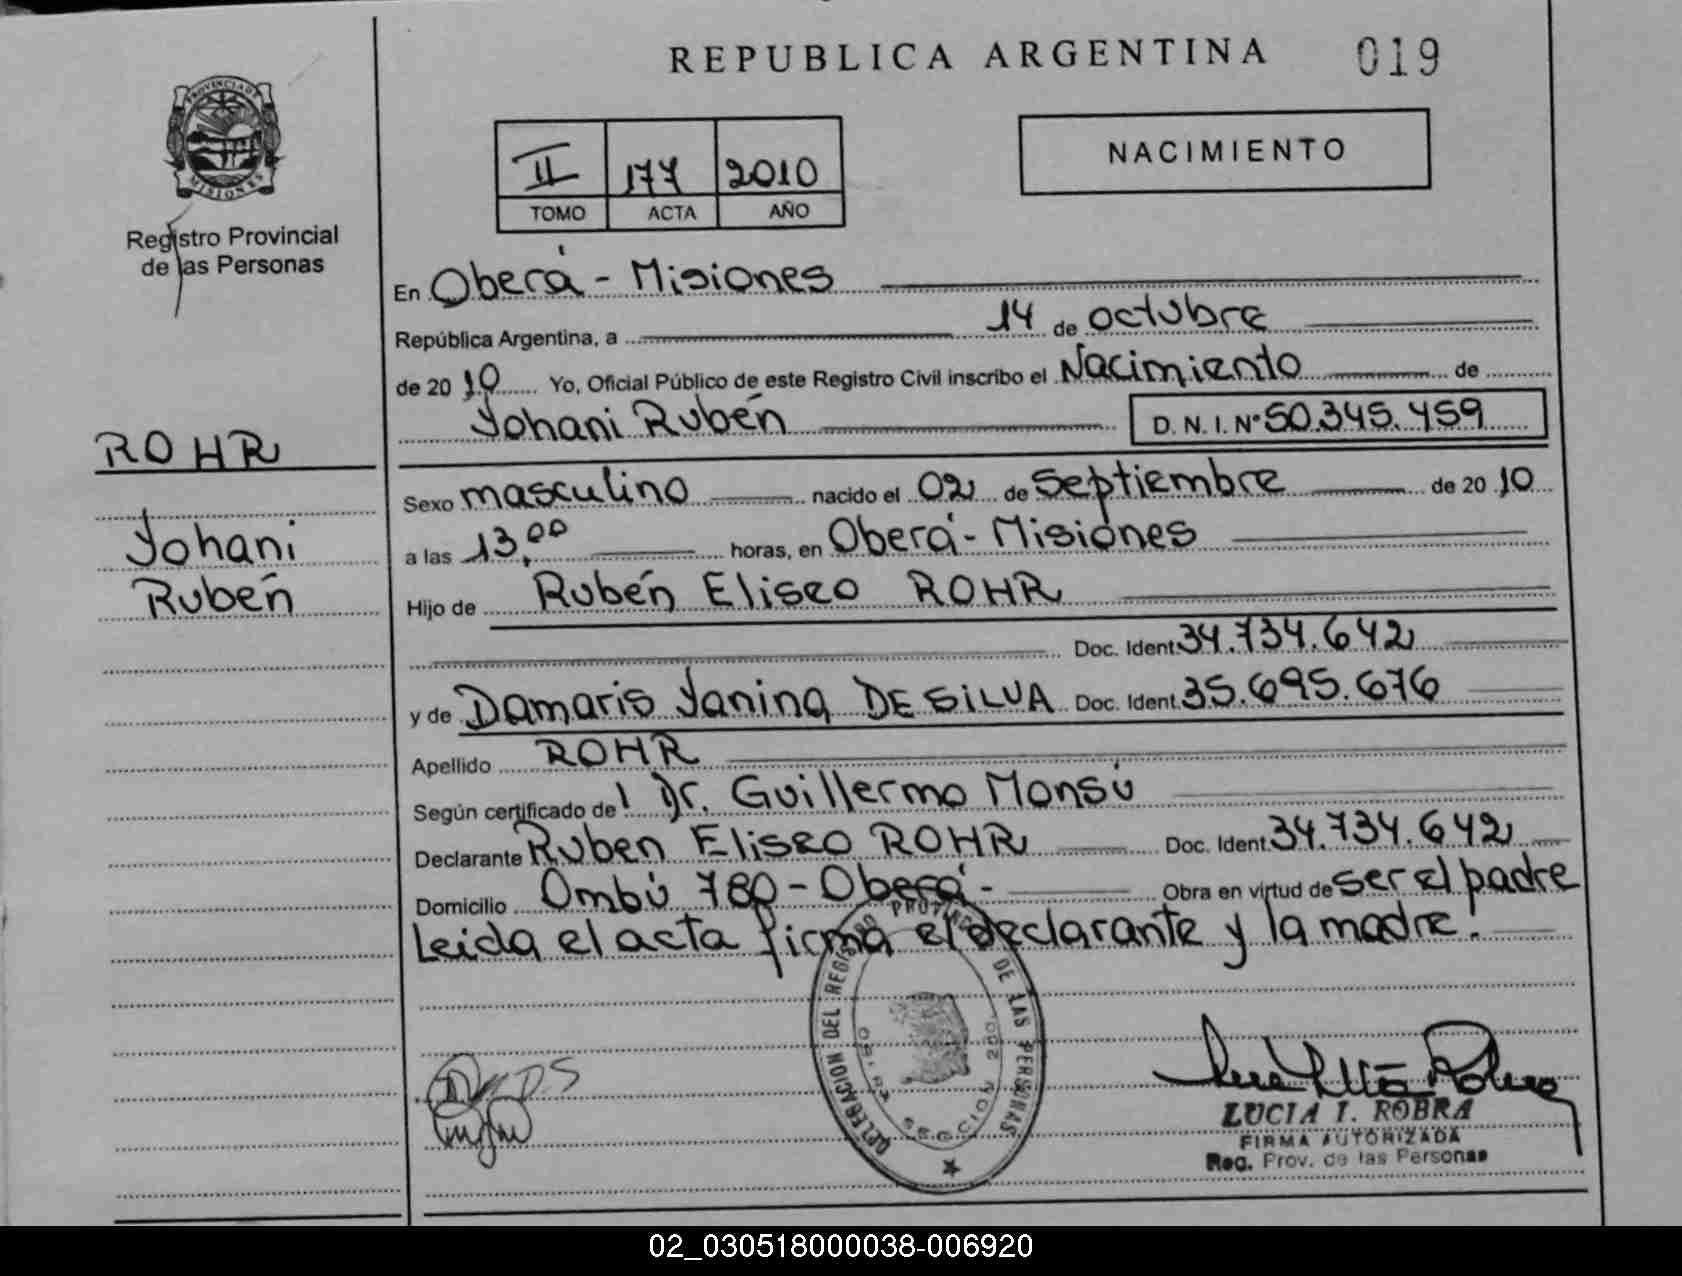 REPUBLICA ARGENTINA 019
PROVINCIA DE
MISIONES
Registro Provincial
de las Personas
II 177 2010
TOMO ACTA AÑO
NACIMIENTO
En Oberá - Misiones
República Argentina, a 14 de octubre
de 2010 Yo, Oficial Público de este Registro Civil inscribo el Nacimiento de
Yohani Rubén D. N. I. Nº 50.345.459
ROHR
Yohani
Rubén
Sexo masculino nacido el 02 de Septiembre de 2010
a las 13,00 horas, en Oberá - Misiones
Hijo de Rubén Eliseo ROHR
Doc. Ident. 34.734.642
y de Damaris Yanina DE SILVA Doc. Ident. 35.695.676
Apellido ROHR
Según certificado del Dr. Guillermo Monsú
Declarante Ruben Eliseo ROHR Doc. Ident. 34.734.642
Domicilio Ombú 780 - Oberá - Obra en virtud de ser el padre
Leida el acta firma el declarante y la madre.
DELEGACION DEL REGISTRO PROVINCIAL DE LAS PERSONAS
OBERA
SECCION
LUCIA I. ROBRA
FIRMA AUTORIZADA
Reg. Prov. de las Personas
02_030518000038-006920